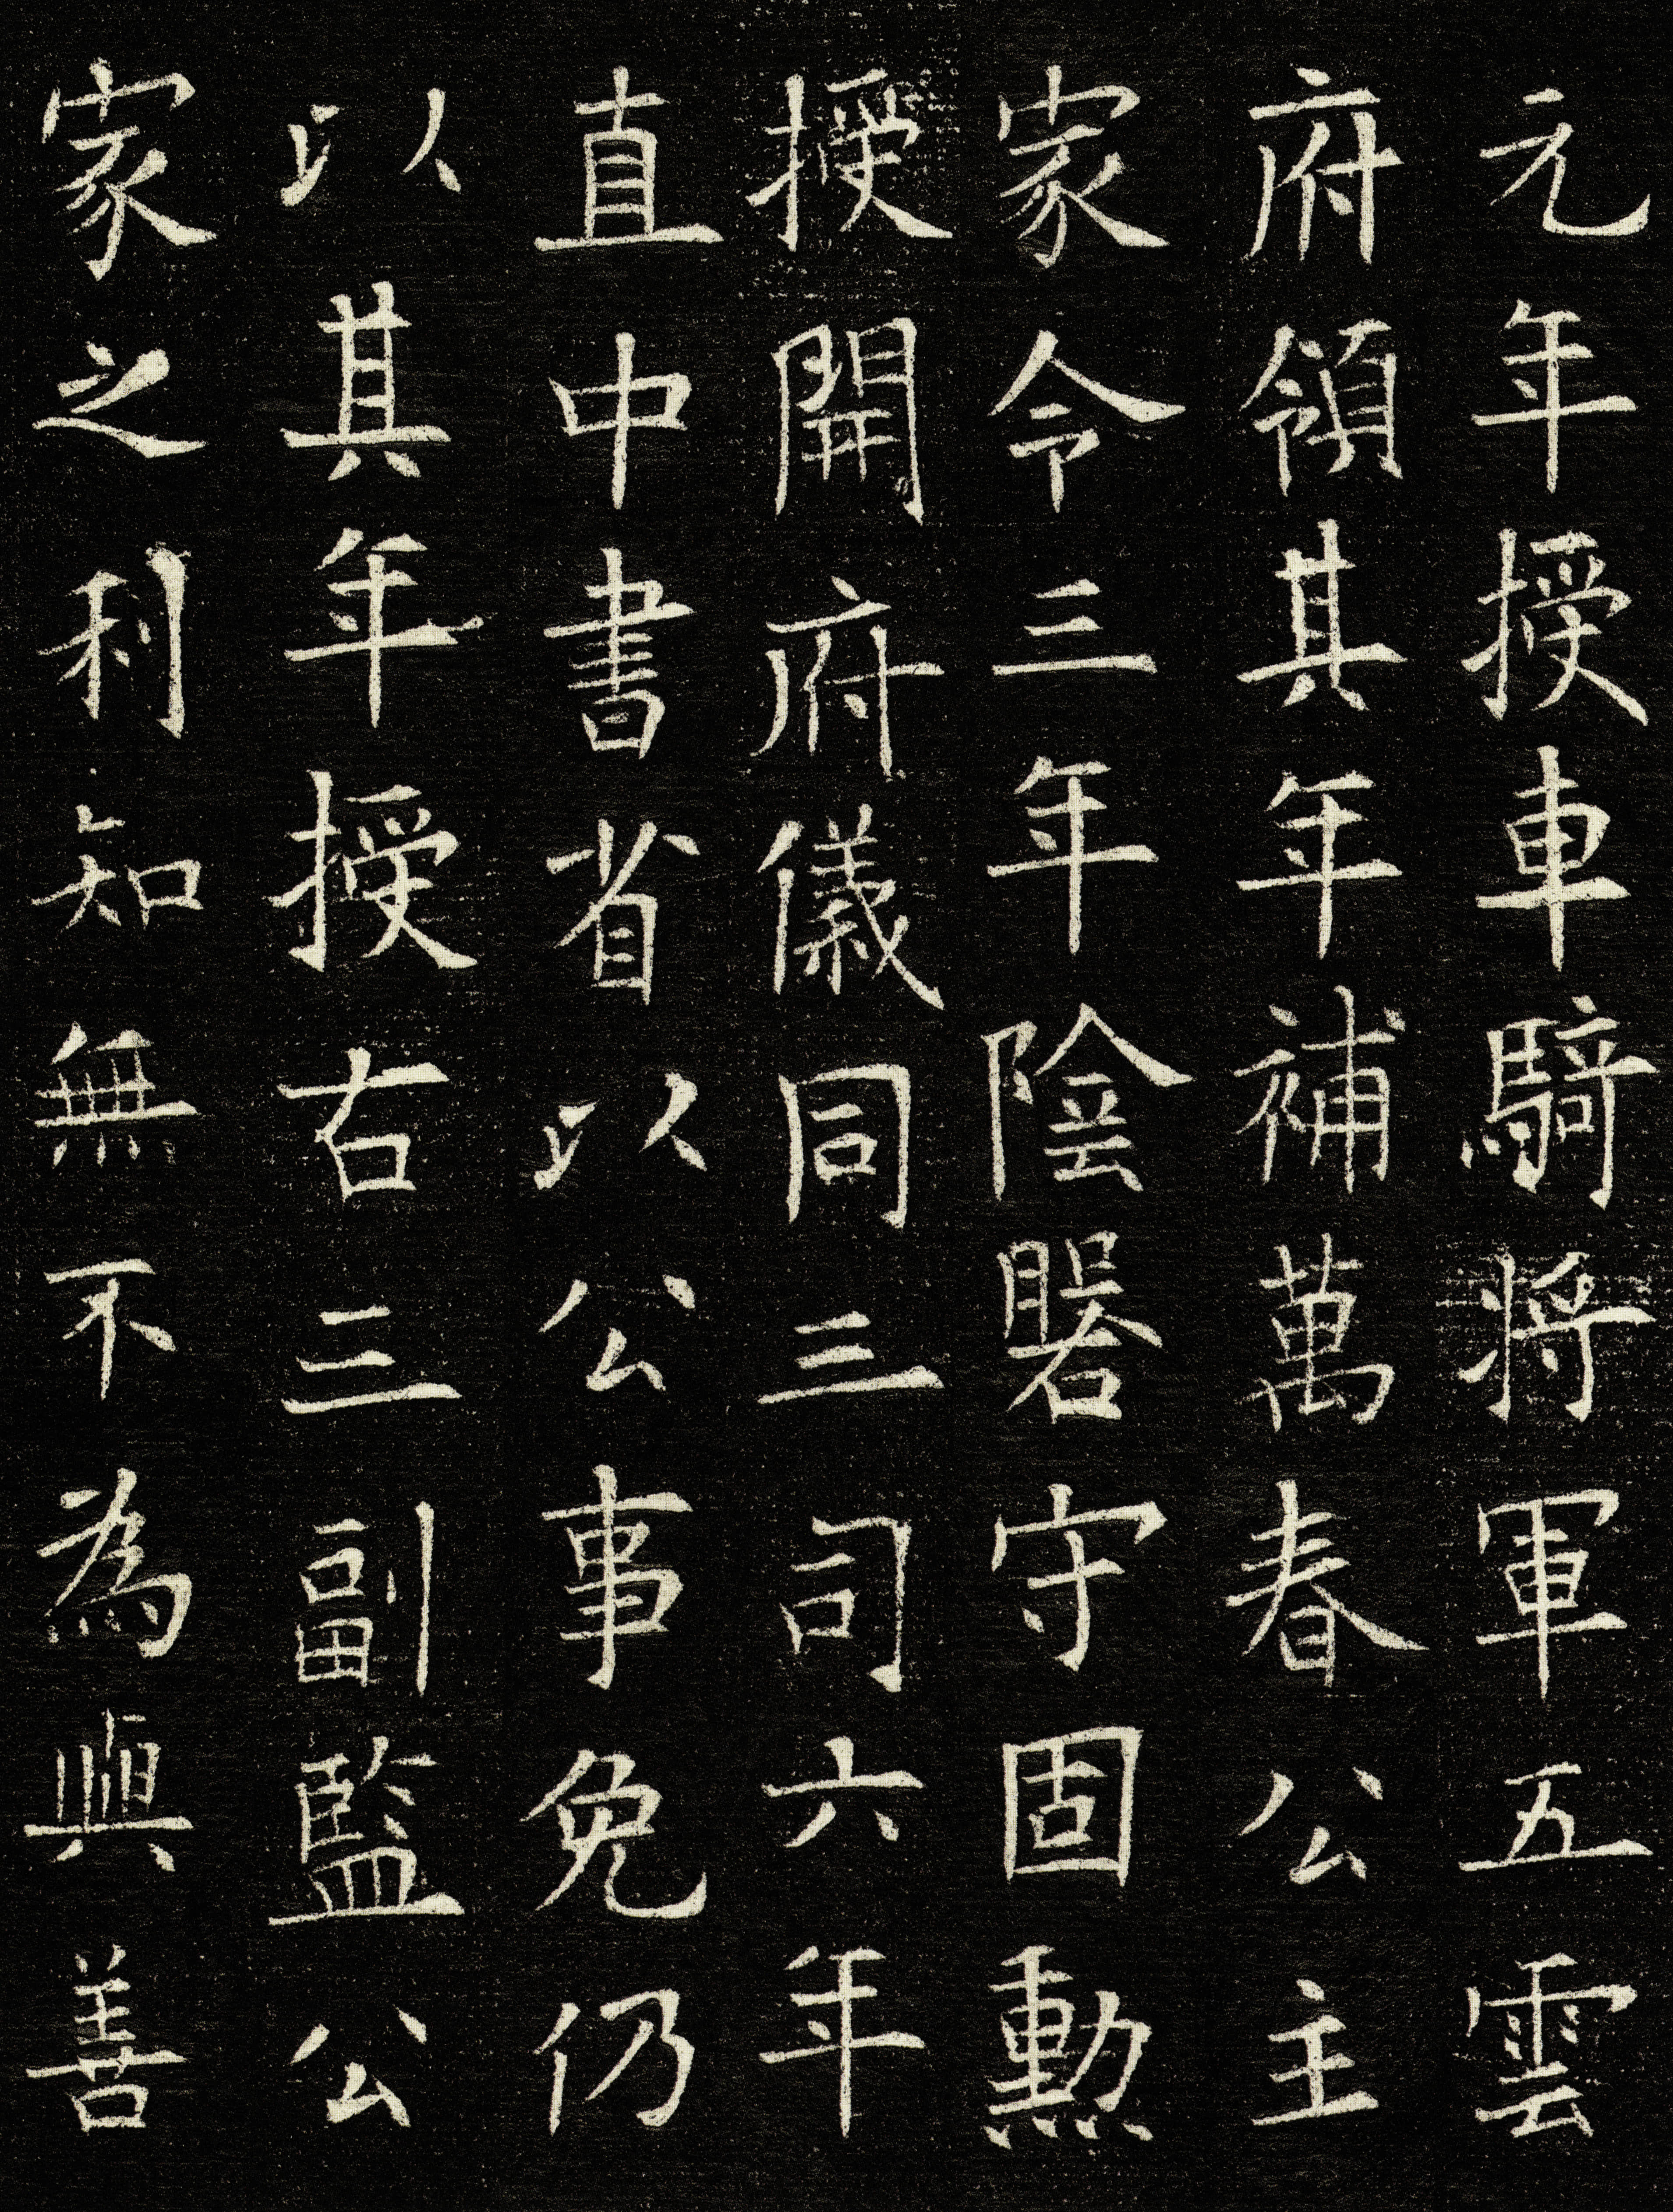 元年授車騎将軍五雲
府領其年補萬春公主
家令三年陰畧守固勲
授開府儀同三司六年
直中書省以公事免仍
以其年授右三副監公
家之利知無不為與善